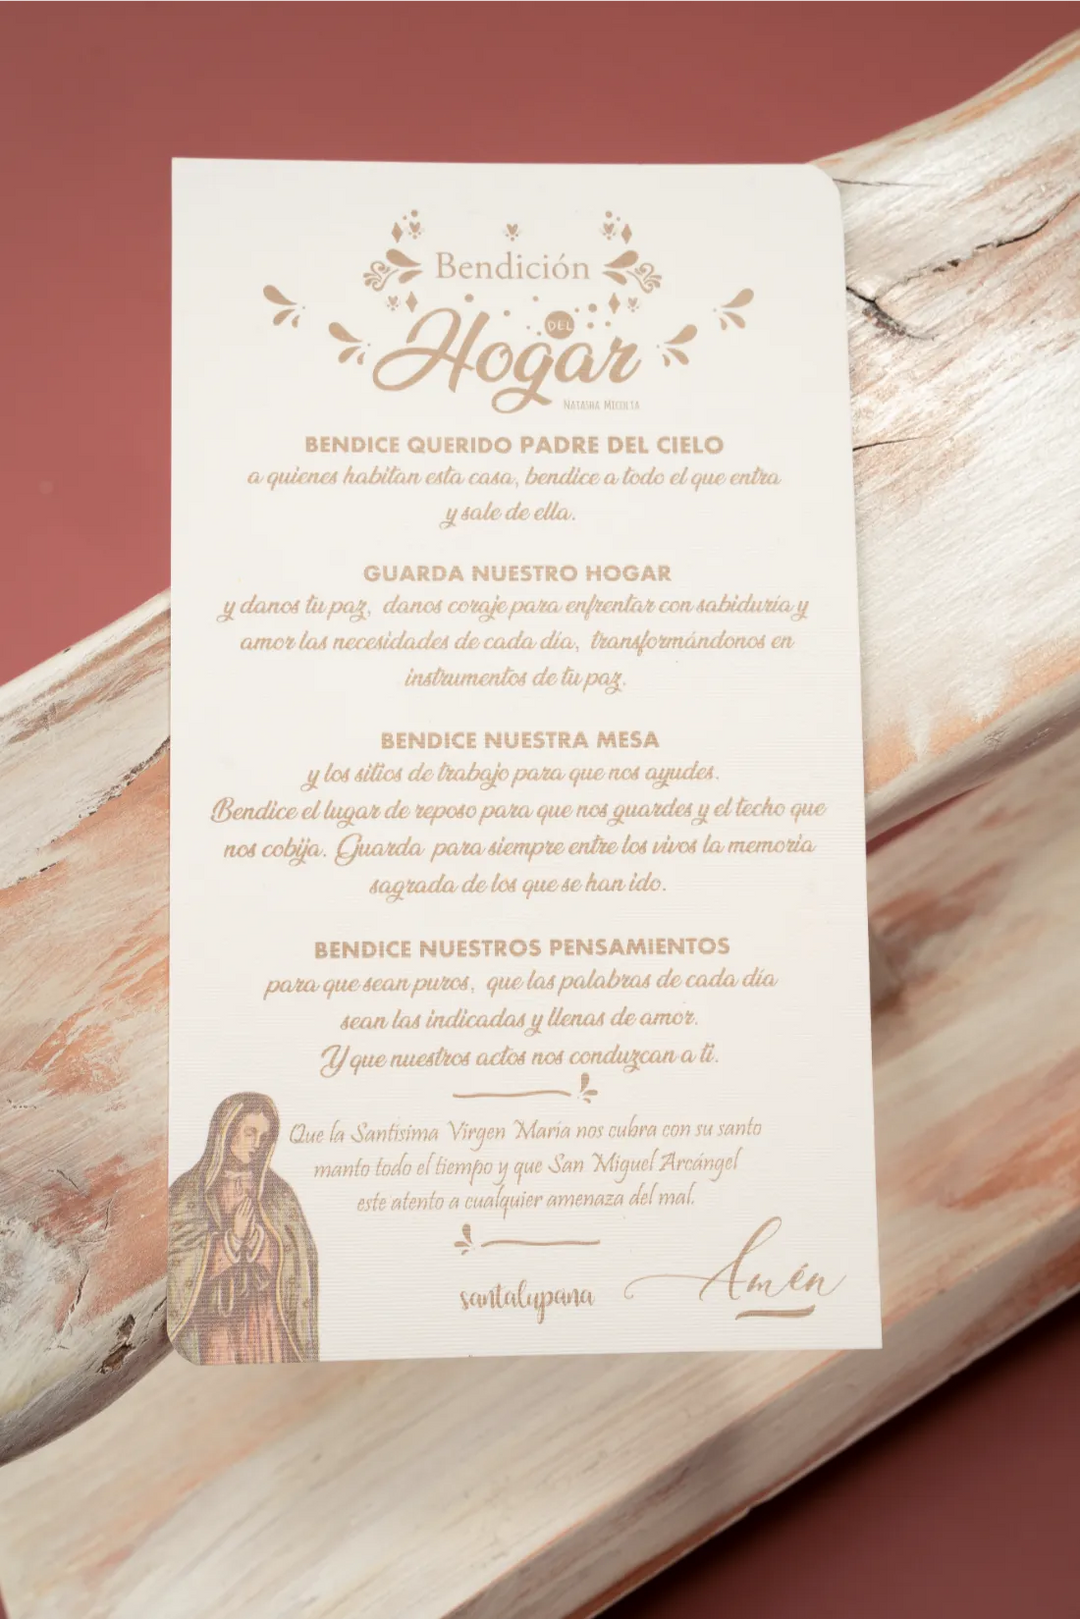 Bendición
DEL
Hogar
NATASHA MICOLTA
BENDICE QUERIDO PADRE DEL CIELO
a quienes habitan esta casa, bendice a todo el que entra
y sale de ella.
GUARDA NUESTRO HOGAR
y danos tu paz, danos coraje para enfrentar con sabiduría y
amor las necesidades de cada día, transformándonos en
instrumentos de tu paz.
BENDICE NUESTRA MESA
y los sitios de trabajo para que nos ayudes.
Bendice el lugar de reposo para que nos guardes y el techo que
nos cobija. Guarda para siempre entre los vivos la memoria
sagrada de los que se han ido.
BENDICE NUESTROS PENSAMIENTOS
para que sean puros, que las palabras de cada día
sean las indicadas y llenas de amor.
Y que nuestros actos nos conduzcan a ti.
Que la Santísima Virgen María nos cubra con su santo
manto todo el tiempo y que San Miguel Arcángel
este atento a cualquier amenaza del mal.
santalupana
Amén